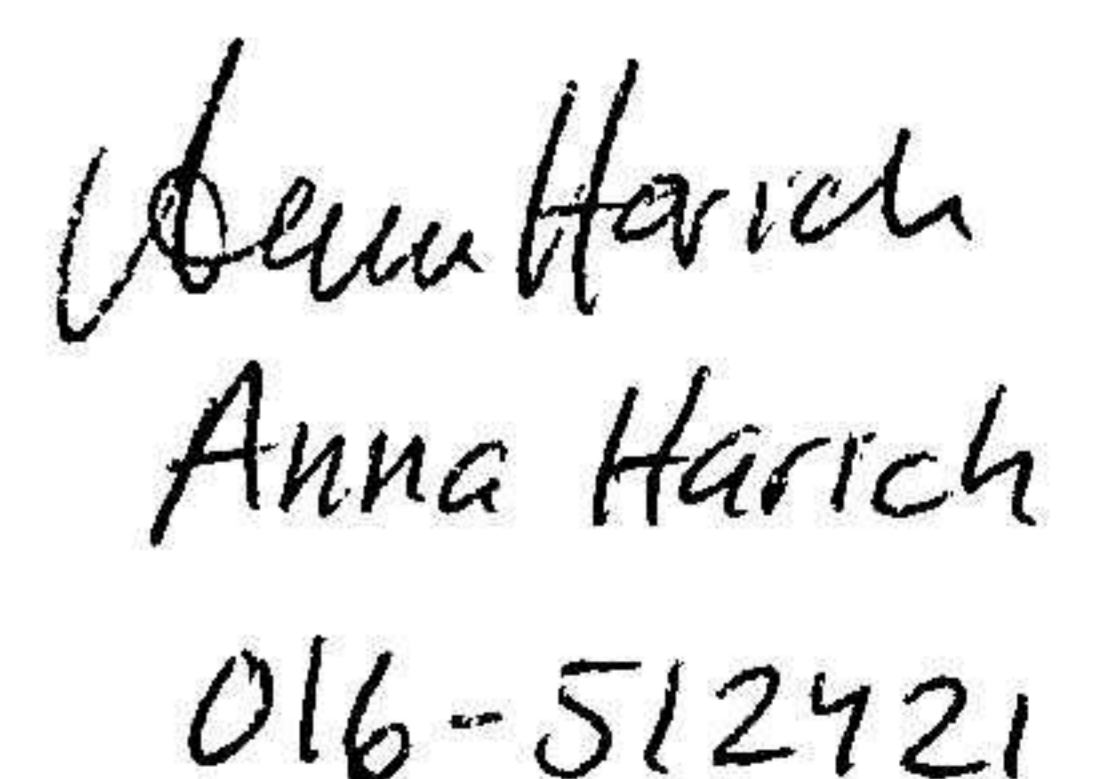 Anna Harich
Anna Harich
016-512421